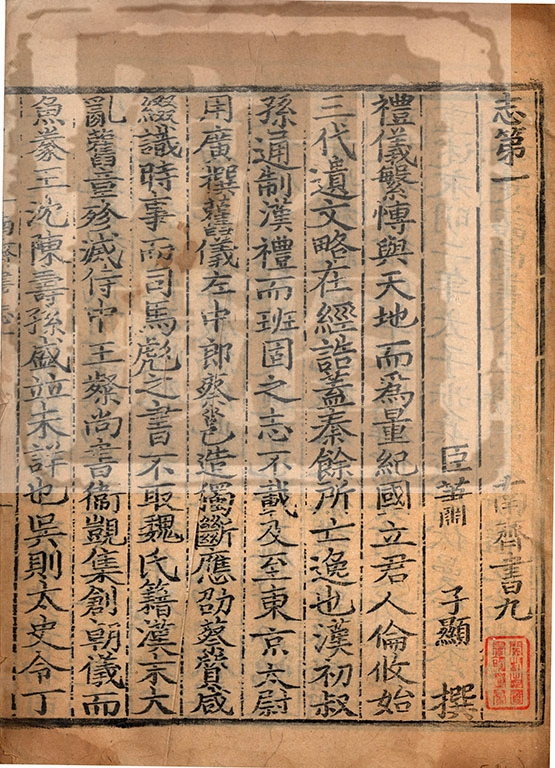 志第一 南齊書九
臣蕭 子顯 撰
禮儀繁愽與天地而爲量紀國立君人倫攸始
三代遺文略在經誥蓋秦餘所亡逸也漢初叔
孫通制漢禮而班固之志不載及至東京太尉
用廣撰舊儀左中郎蔡邕造獨斷應劭蔡質咸
綴識時事而司馬彪之書不取魏氏籍漢末大
亂舊章殄滅侍中王粲尚書衞覬集創朝儀而
魚豢王沈陳壽孫盛並未詳也吳則太史令丁